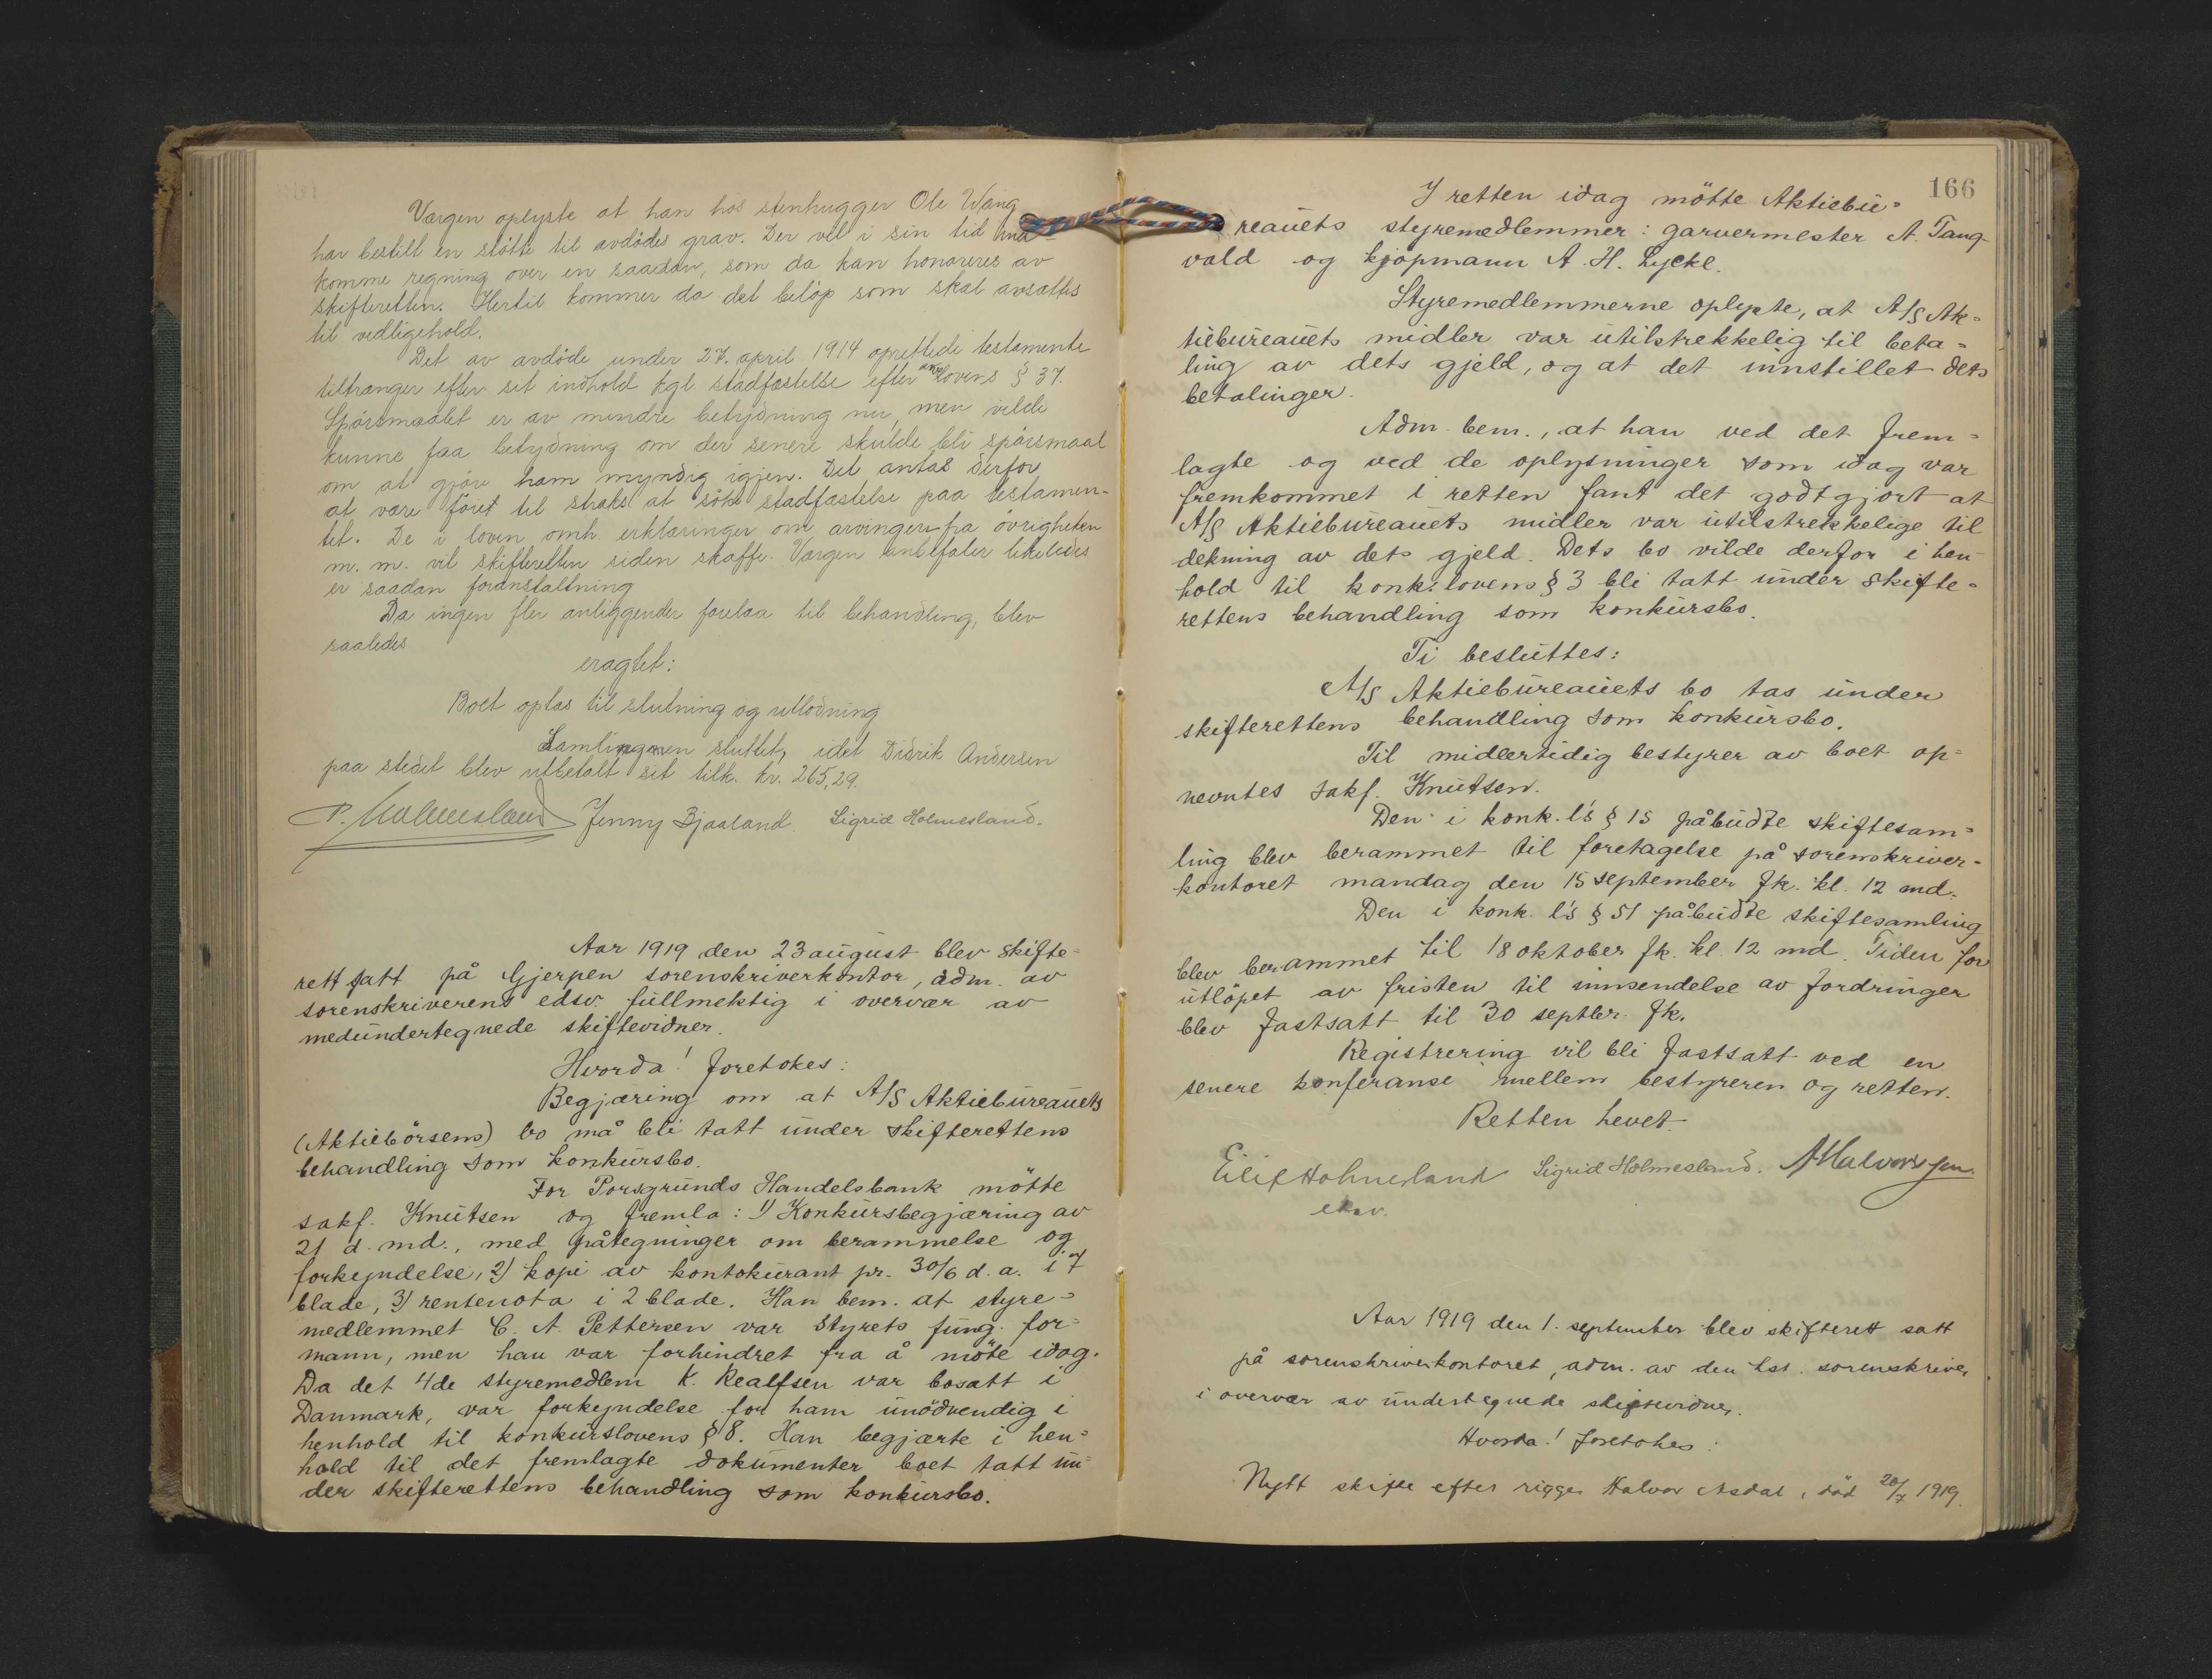 Værgen oplyste at han hos stenhugger Ole Wang
har bestilt en støtte til avdødes grav. Der vil i sin tid ind-
komme regning over en saadan, som da kan honoreres av
skifteretten. Hertil kommer da det beløp som skal avsættes
til vedligehold.
Det av avdøde under 27. april 1914 oprettede testamente
tiltrænger efter sit indhold kgl. stadfæstelse efter arvelovens § 37.
Spørsmaalet er av mindre betydning nu, men vilde
kunne faa betydning om der senere skulde bli spørsmaal
om at gjøre ham myndig igjen. Det antas derfor
at være føiet til straks at søke stadfæstelse paa testamen-
tet. De i loven omh. erklæringer om arvingers fra øvrigheten
m. m. vil skifteretten siden skaffe. Værgen anbefaler likeledes
er saadan foranstaltning
Da ingen fler anliggender forelaa til behandling, blev
saaledes
eragtet:
Boet optas til slutning og utlodning
Samlingen sluttet, idet Didrik Andersen
paa stedet blev utbetalt sit tilk. kr. 265,29.
P. Holmesland Jenny Bjaaland Sigrid Holmesland.
Aar 1919 den 23 august blev skifte-
rett satt på Gjerpen sorenskriverkontor, adm. av
sorenskriverens edsv. fullmektig i overvær av
medundertegnede skiftevidner.
Hvorda! foretokes:
Begjæring om at A/S Aktiebureauets
(Aktiebörsens) bo må bli tatt under skifterettens
behandling som konkursbo.
For Porsgrunds Handelsbank mötte
sakf. Knutsen og fremla: 1) Konkursbegjæring av
21 d. md., med påtegninger om berammelse og
forkyndelse, 2) kopi av kontokurant pr. 30/6 d. a. i 7
blade, 3) rentenota i 2 blade. Han bem. at styre=
medlemmet C. A. Pettersen var styrets fung. for=
mann, men han var forhindret fra å möte idag.
Da det 4de styremedlem K. Realfsen var bosatt i
Danmark, var forkyndelse for ham unödvendig i
henhold til konkurslovens § 8. Han begjærte i hen=
hold til det fremlagte dokumenter boet tatt un=
der skifterettens behandling som konkursbo.
166
I retten idag mötte Aktiebu=
reauets styremedlemmer: garvermester A. Tang-
vald og kjöpmann A. H. Lycke.
Styremedlemmerne oplyste, at A/S Ak=
tiebureauets midler var utilstrekkelig til beta=
ling av dets gjeld, og at det innstillet dets
betalinger.
Adm. bem., at han ved det frem=
lagte og ved de oplysninger som idag var
fremkommet i retten fant det godtgjort at
A/S Aktiebureauets midler var utilstrekkelige til
dekning av dets gjeld. Dets bo vilde derfor i hen-
hold til konk.lovens § 3 bli tatt under skifte=
rettens behandling som konkursbo.
Ti besluttes:
A/S Aktiebureauets bo tas under
skifterettens behandling som konkursbo.
Til midlertidig bestyrer av boet op=
nevntes sakf. Knutsen.
Den i konk. l's § 15 påbudte skiftesam=
ling blev berammet til foretagelse på sorenskriver-
kontoret mandag den 15 september fk. kl. 12 md.
Den i konk. l's § 51 påbudte skiftesamling
blev berammet til 18 oktober fk. kl. 12 md. Tiden for
utlöpet av fristen til innsendelse av fordringer
blev fastsatt til 30 septbr. fk.
Registrering vil bli fastsatt ved en
senere konferanse mellem bestyreren og retten.
Retten hevet.
Eilif Holmesland Sigrid Holmesland. A Halvorsen
edsv.
Aar 1919 den 1. september blev skifterett satt
på sorenskriverkontoret, adm. av den kst. sorenskriver
i overvær av undertegnede skiftevidner.
Hvorda! foretokes:
Nytt skifte efter rigger Halvor Aasdal, död 20/7 1919.